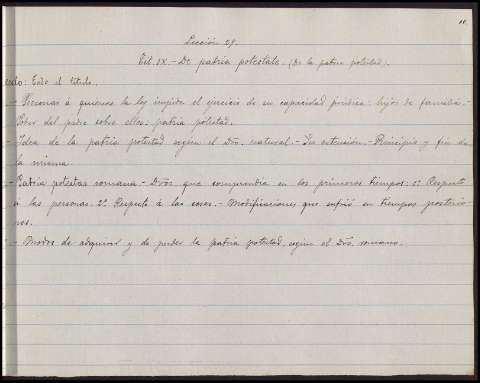 Lección 29.
Tit. IX.- De patria potestate. (De la patria potestad).
Todo el titulo.
- Personas á quienes la ley impide el ejercicio de su capacidad jurídica: hijos de familia.-
Poder del padre sobre ellos: patria potestad.
- Idea de la patria potestad segun el Dro. natural.- Su extensión.- Principio y fin de
la misma.
- Patria potestas romana.- Dros. que comprendia en los primeros tiempos: 1º Respecto
á las personas. 2º Respecto á las cosas.- Modificaciones que sufrió en tiempos posterio-
res.
- Modos de adquirir y de perder la patria potestad, segun el Dro. romano.